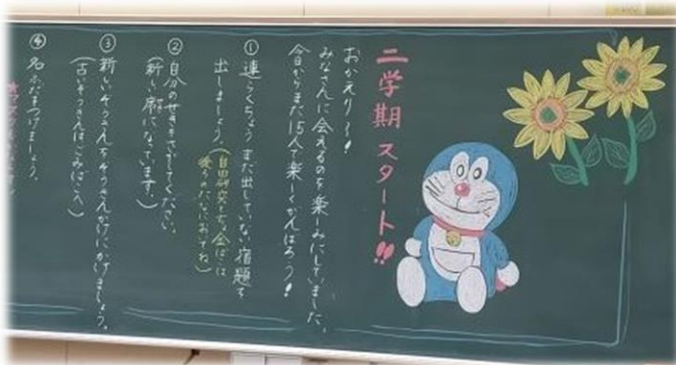 二学期 スタート!!
おかえり〜!
みなさんに会えるのを楽しみにしていました。
今日からまた15人で楽しくがんばろう!
① 連らくちょう、まだ出していない宿題を
出しましょう。(自由研究とちょ金ばこは
後ろのたなにおいてね)
② 自分のせきをさがしてください。
(新しい席になっています!)
③ 新しいぞうきんをぞうきんかけにかけましょう。
(古いぞうきんはごみばこへ)
④ 名ふだをつけましょう。